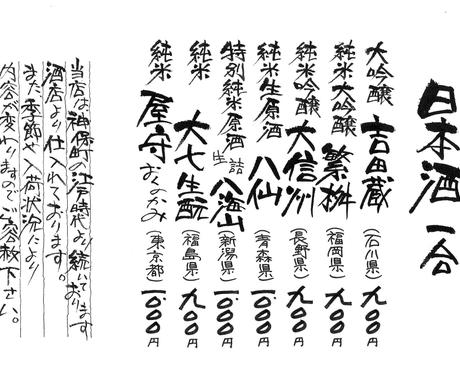 日本酒 一合
大吟醸 吉田蔵 (石川県) 九〇〇円
純米大吟醸 繁桝 (福岡県) 九〇〇円
純米吟醸 大信州 (長野県) 九〇〇円
純米生原酒 八仙 (青森県) 一、〇〇〇円
特別純米原酒 生詰 八海山 (新潟県) 一、〇〇〇円
純米 大七生酛 (福島県) 九〇〇円
純米 屋守 おくのかみ (東京都) 一、〇〇〇円
当店は神保町、江戸時代より続いております
酒店より仕入れております。
また季節や入荷状況により
内容が変わりますのでご容赦下さい。